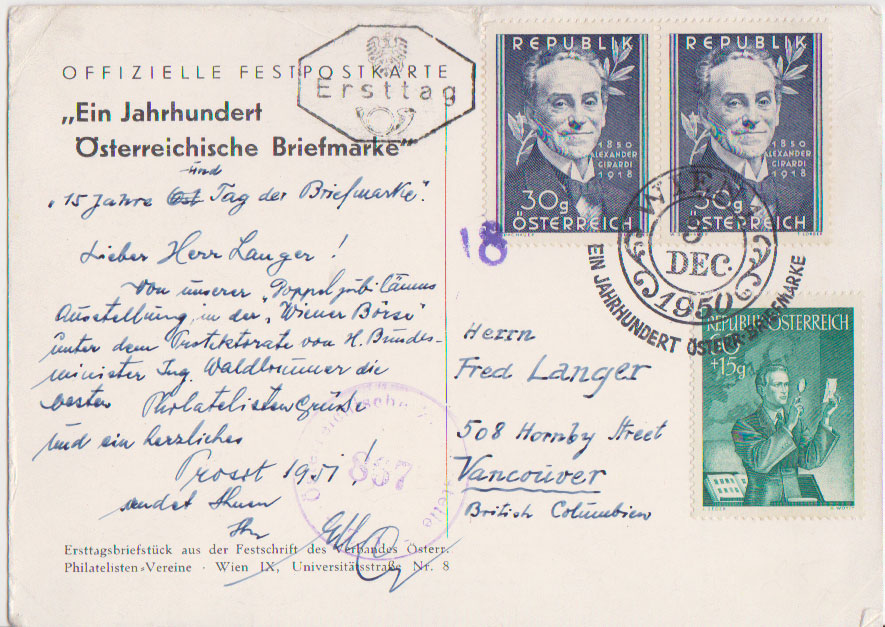 OFFIZIELLE FESTPOSTKARTE
Ersttag
„Ein Jahrhundert
Österreichische Briefmarke"
und
„15 Jahre Tag der Briefmarke".
Lieber Herr Langer!
Von unserer „Doppeljubiläums
Ausstellung in der „Wiener Börse"
unter dem Protektorate von H. Bundes-
minister Ing. Waldbrunner die
besten Philatelistengrüße
und ein herzliches
Prosst 1951!
sendet Ihnen
Ihr
Ersttagsbriefstück aus der Festschrift des Verbandes Österr.
Philatelisten-Vereine · Wien IX, Universitätsstraße Nr. 8
Österreichische
857
REPUBLIK
1850
ALEXANDER
GIRARDI
1918
30g
ÖSTERREICH
REPUBLIK
1850
ALEXANDER
GIRARDI
1918
30g
ÖSTERREICH
18
WIEN
DEC.
1950
EIN JAHRHUNDERT ÖSTERR. BRIEFMARKE
REPUBLIK ÖSTERREICH
60
+15g
Herrn
Fred Langer
508 Hornby Street
Vancouver
British Columbien